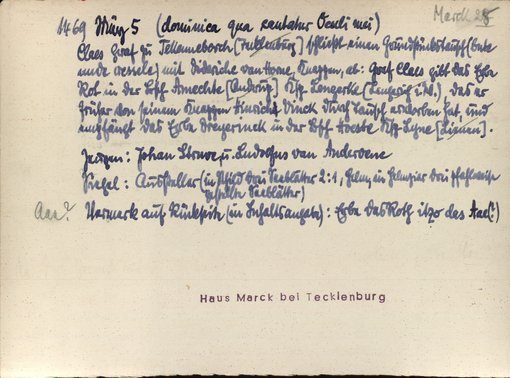 March 28
1469 März 5 (dominica qua cantatur Oculi mei)
Claes Graf zu Tekeneborch [Tecklenburg] schließt einen Grundstückstausch (bute
unde wessele) mit Diderike van Horne, Knappen, ab: Graf Claes gibt das Erbe
Rot in der Bsch Amechte [Andrup] Ksp. Lengerke [Lengerich i.W.], das er
früher von seinem Knappen Hinrich Vinck durch Tausch erworben hat, und
empfängt das Erbe Dreyerinck in der Bsch Hoeste Ksp. Lyne [Lienen].
Zeugen: Johan Struve u. Ludolfus van Andervene
Siegel: Aussteller (im Schild drei Seeblätter 2:1, Helm, im Helmzier drei pfahlweise
gestellte Seeblätter)
Aae? Vermerk auf Rückseite (in Inhaltsangabe): Erbe das Roth itzo das Aae(?)
Haus Marck bei Tecklenburg